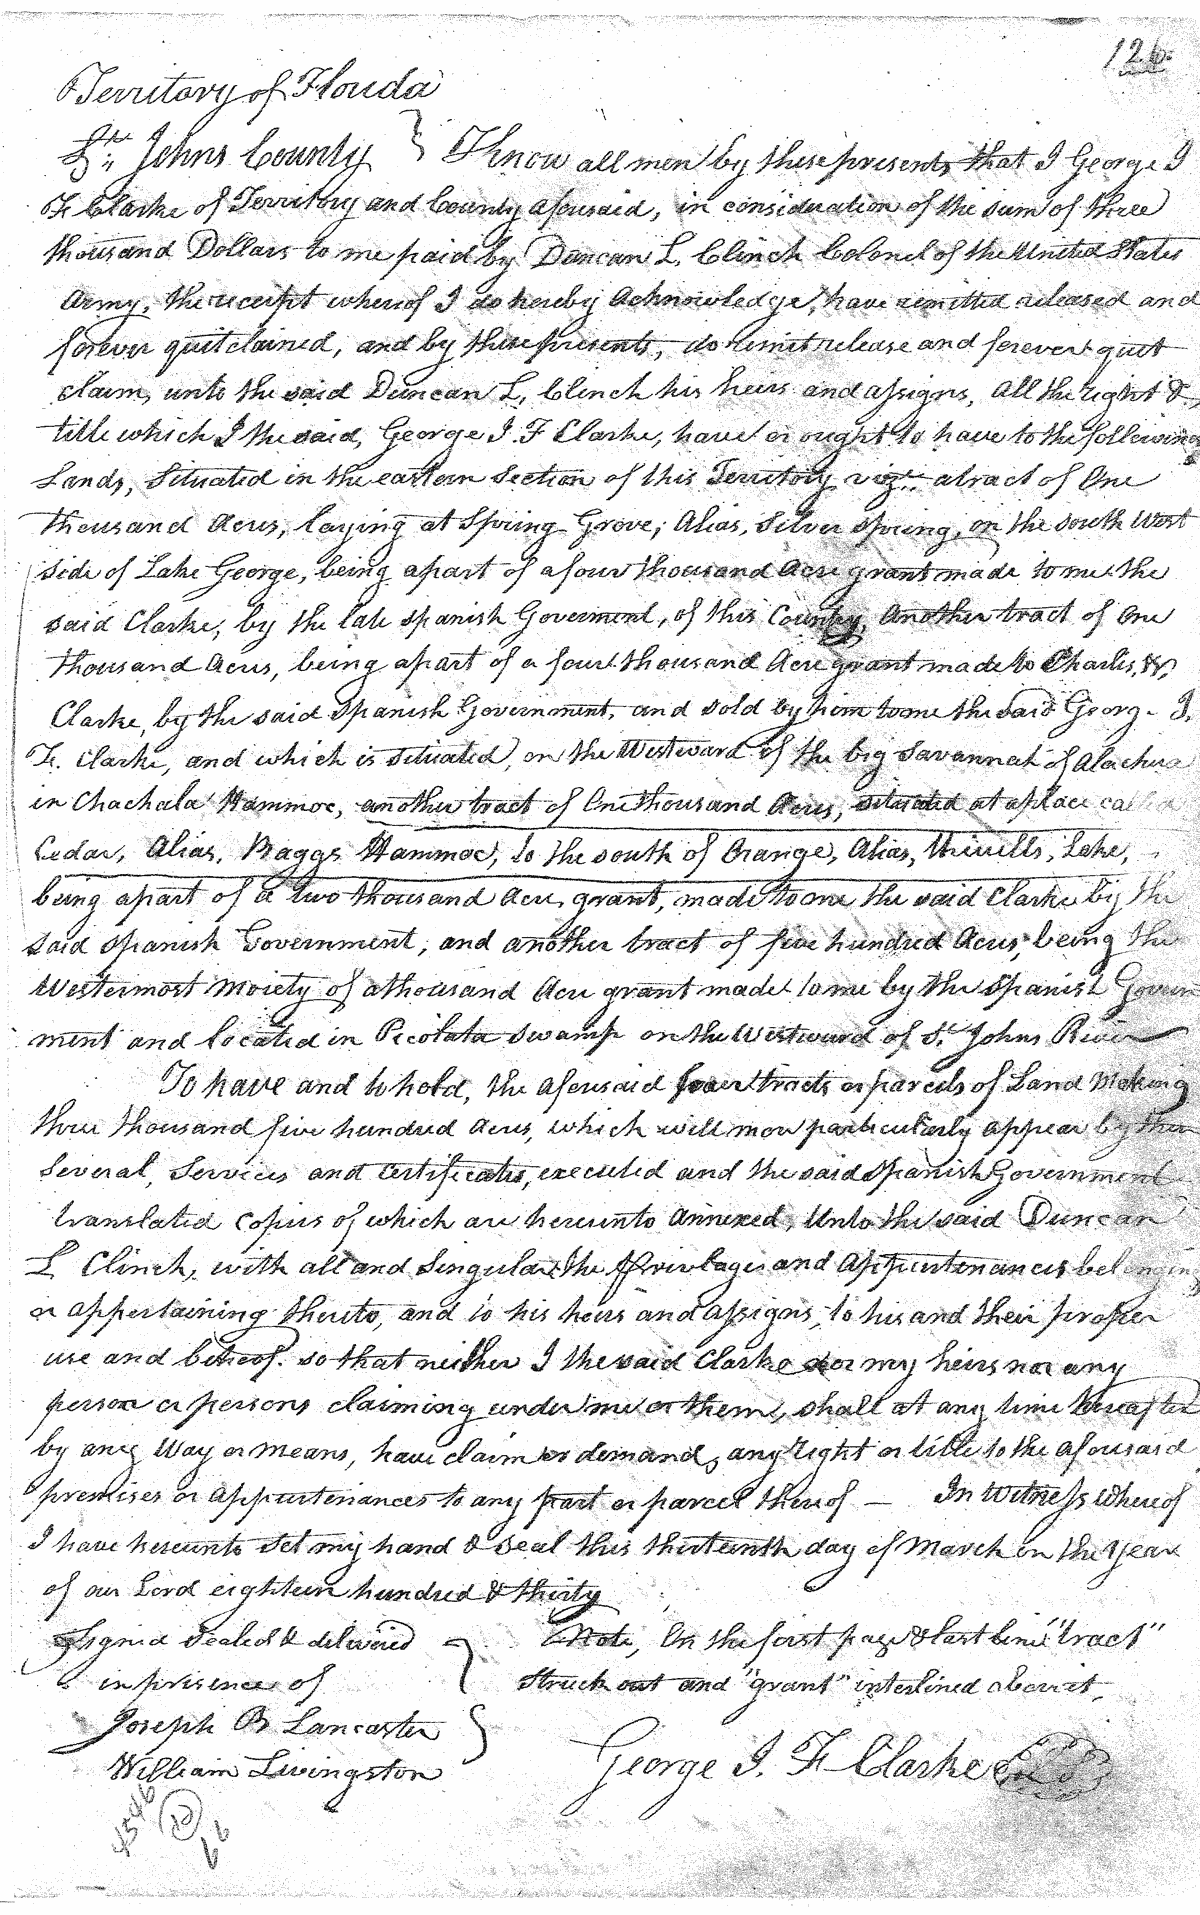 126.
Territory of Florida
St. Johns County } Know all men by these presents, that I George I
F. Clarke of Territory and County aforesaid, in consideration of the sum of three
thousand Dollars to me paid by Duncan L. Clinch Colonel of the United States
Army, the receipt whereof I do hereby Acknowledge, have remitted released and
forever quitclaimed, and by these presents, do remit release and forever quit
claim, unto the said Duncan L. Clinch his heirs and assigns, all the right &
title which I the said, George I. F Clarke, have or ought to have to the following
Lands, Situated in the eastern Section of this Territory, vizt. a tract of One
thousand Acres, laying at Spring Grove, Alias, Silver Spring, on the South West
side of Lake George, being a part of a four thousand Acre grant made to me the
said Clarke, by the late Spanish Goverment, of this Country, Another tract of One
thousand Acres, being a part of a four thousand Acre grant made to Charles, W,
Clarke, by the said Spanish Government, and sold by him to me the said George I.
F. Clarke, and which is situated, on the Westward of the big Savannah of Alachua
in Chachala Hammoc, another tract of One thousand Acres, situated at a place called
Cedar, Alias, Braggs Hammoc, to the south of Orange, Alias, Lake,
being a part of a two thousand Acre grant, made to me the said Clarke by the
said Spanish Government, and another tract of five hundred Acres, being the
Westermost Moiety of a thousand Acre grant made to me by the Spanish Govern
ment and located in Picolata Swamp on the Westward of St. Johns River
To have and to hold, the aforesaid four tracts or parcels of Land Making
three thousand five hundred Acres, which will more particularly appear by their
Several, Services and Certificates, executed and the said Spanish Government
translated Copies of which are hereunto Annexed, Unto the said Duncan
L Clinch, with all and Singular the Privlages and Appurtenances belonging
or appertaining thereto, and to his heirs and assigns, to his and their proper
use and behoof. so that neither I the said Clarke nor my heirs nor any
person or persons claiming under me or them, shall at any time hereafter
by any Way or means, have claim or demand, any right or title to the aforesaid
premises or appurtenances to any part or parcel thereof — In Witness Whereof
I have hereunto Set my hand & Seal this thirteenth day of March in the Year
of our Lord eighteen hundred & thirty
Signed Sealed & delivered } Note, On the first page & last line "tract"
in presence of Struck out and "grant" interlined above it,
Joseph B Lancaster }
William Livingston George I. F Clarke